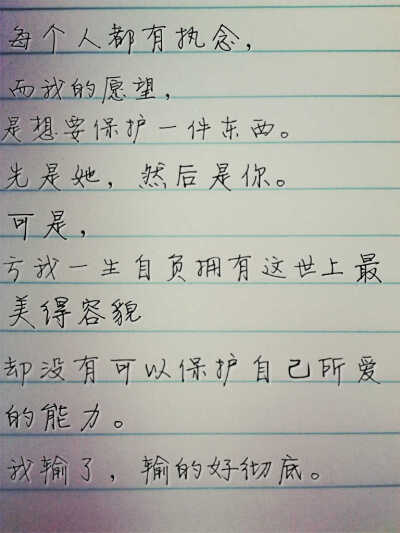 每个人都有执念，
而我的愿望，
是想要保护一件东西。
先是她，然后是你。
可是，
亏我一生自负拥有这世上最
美得容貌
却没有可以保护自己所爱
的能力。
我输了，输的好彻底。